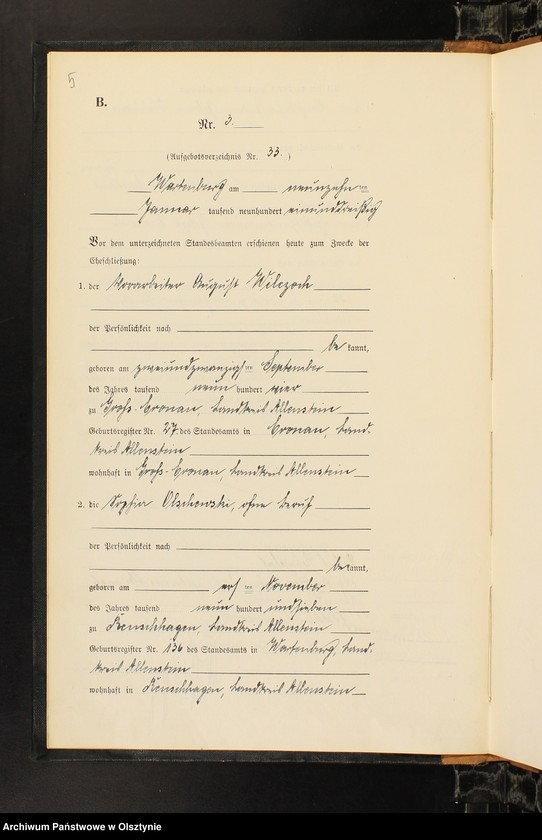 5
B.
Nr. 3.
(Aufgebotsverzeichnis Nr. 33.)
Wartenburg am neunzehn ten
Januar tausend neunhundert einunddreißig
Vor dem unterzeichneten Standesbeamten erschienen heute zum Zwecke der
Eheschließung:
1. der Vorarbeiter August Wilczoch
der Persönlichkeit nach
be kannt,
geboren am zweiundzwanzigs ten September
des Jahres tausend neun hundert vier
zu Groß-Cronau, Landkreis Allenstein
Geburtsregister Nr. 27. des Standesamts in Cronau, Land-
kreis Allenstein
wohnhaft in Groß-Cronau, Landkreis Allenstein
2. die Sophia Olschewski, ohne Beruf
der Persönlichkeit nach
be kannt,
geboren am ten November
des Jahres tausend neun hundert undsieben
zu Leuschhagen, Landkreis Allenstein
Geburtsregister Nr. 136 des Standesamts in Wartenburg, Land-
kreis Allenstein
wohnhaft in Leuschhagen, Landkreis Allenstein
Archiwum Państwowe w Olsztynie